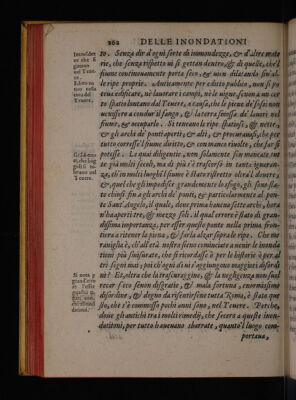 202 DELLE INONDATIONI
to. Senza dir d'ogni sorte di immondezze, & d'altre mate
rie, che senza rispetto ui si gettan dentro, & di quelle, che'l
fiume continuamente porta seco, & uien dilatando sin'al-
le ripe proprie. Anticamente per editto publico, non si po
teua edificare, nè lauorare i campi, nè le uigne, senon à un cer
to spatio lontano dal Teuere, a causa, che le piene de' fossi non
uenissero a condur'il fango, & la terra smossa de' campi nel
fiume, & occuparlo. Si teneuano le ripe spatiose, & nette,
& gli archi de' ponti aperti, & alti, & procurauasi, che per
tutto corresse'l fiume diritto, & con manco riuolte, che far si
potesse. Le quai diligentie, non solamente son mancate, un
te già molti secoli, ma di più s'è trascorso in tanta ignoran-
za, ch'en molti luoghi'l fiume è stato ristretto oltra'l douere,
&, quel che gli impedisce grandemente lo sfogo, gli sono sta-
to chiusi fin a gli archi de' ponti, & particolarmente al pon-
te Sant'Angelo, il quale, doue prima haueua sette archi, hora
n'ha aperti tre, & mezzo soli. il qual errore è stato di gran-
dissima importanza, per esser questo ponte nella prima fron-
tiera a ritener la piena, & farla alzar sopra le ripe. Che me
rauiglia è, ch'all'età nostra sieno cominciate a uenir le inonda
tioni più smisurate, che si ricordasse è per le historie è per al
tri segni mai; poi ch'ogni dì ui s'aggiungono maggiori disordi
ni? Et, oltra che la trascuraggine, & la negligenza non suol
recar seco senon disgratie, & mala fortuna, enormissimo
disordine, & degno da risentirsene tutta Roma, è stato que
sto, che s'è commesso pochi anni sono, nel Teuere. Perche,
doue gli antichi tra i molti rimedij, che fecero a queste inon-
datitoni, per tutto li haueuano sbarrate, quanto'l luogo com-
portaua,
Immondez
ze che si
gettano
nel Teue
re.
Teuere.